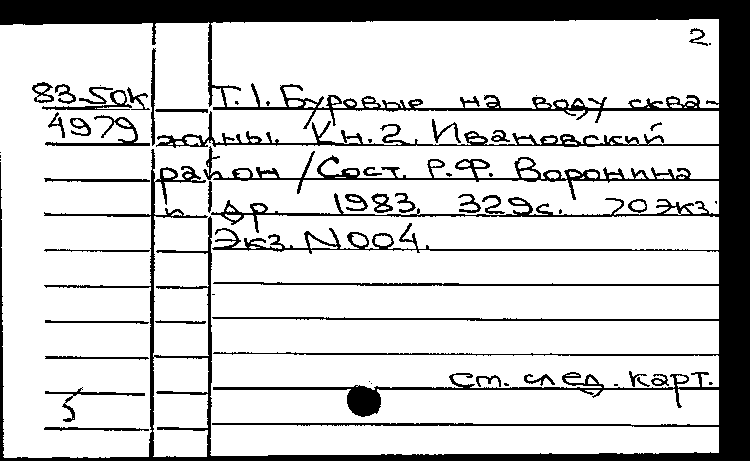 2.
83-50к Т.1. Буровые на воду сква-
4979 жины. Кн.2. Ивановский
район / Сост. Р.Ф. Воронина
и др. 1983. 329с. 70 экз.
Экз. N004.
см. след. карт.
5